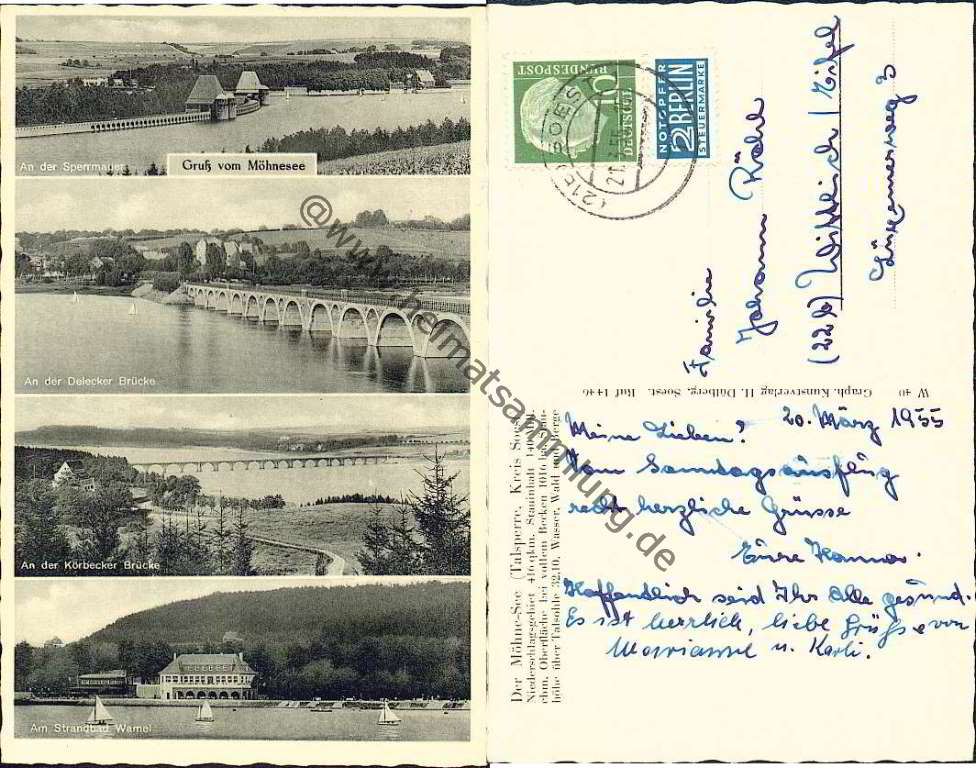 An der Sperrmauer
Gruß vom Möhnesee
An der Delecker Brücke
An der Körbecker Brücke
Am Strandbad Wamel
@www.heimatsammlung.de
DEUTSCHE
BUNDESPOST
10
NOTOPFER
2 BERLIN
STEUERMARKE
(21b) SOEST
Familie
Johann
(22b) Wittlich / Eifel
W 40 Graph. Kunstverlag H. Dülberg, Soest. Ruf 1446
Der Möhne-See (Talsperre, Kreis Soest)
Niederschlagsgebiet 416 qkm. Stauinhalt
cbm. Oberfläche bei vollem Becken 1016 ha.
höhe über Talsohle 32,10. Wasser, Wald und Berge
20. März 1955
Meine Lieben!
Vom Sonntagsausflug
recht herzliche Grüsse
Eure Hanna.
Hoffentlich seid Ihr Alle gesund.
Es ist herrlich, liebe Grüße von
Marianne u. Karli.